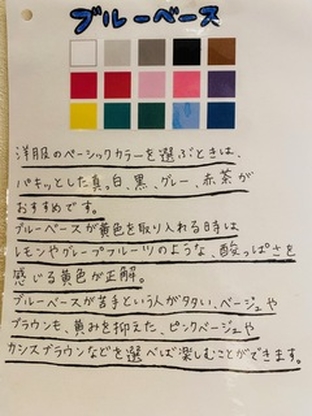 ブルーベース
洋服のベーシックカラーを選ぶときは、
パキッとした真っ白、黒、グレー、赤茶が
おすすめです。
ブルーベースが黄色を取り入れる時は
レモンやグレープフルーツのような、酸っぱさを
感じる黄色が正解。
ブルーベースが苦手という人が多い、ベージュや
ブラウンも、黄みを抑えた、ピンクベージュや
カシスブラウンなどを選べば楽しむことができます。